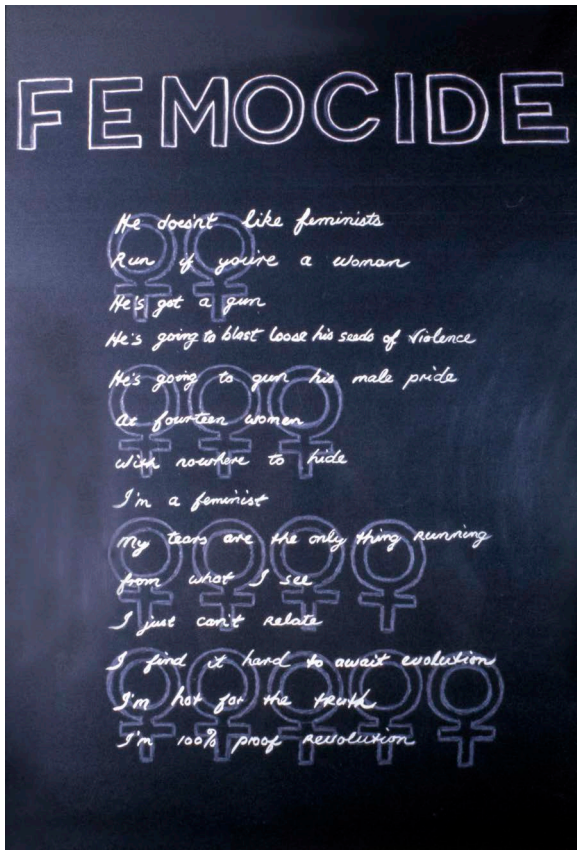 FEMOCIDE
He doesn't like feminists
Run if you're a woman
He's got a gun
He's going to blast loose his seeds of violence
He's going to gun his male pride
At fourteen women
with nowhere to hide
I'm a feminist
My tears are the only thing running
from what I see
I just can't relate
I find it hard to await evolution
I'm hot for the truth
I'm 100% proof revolution